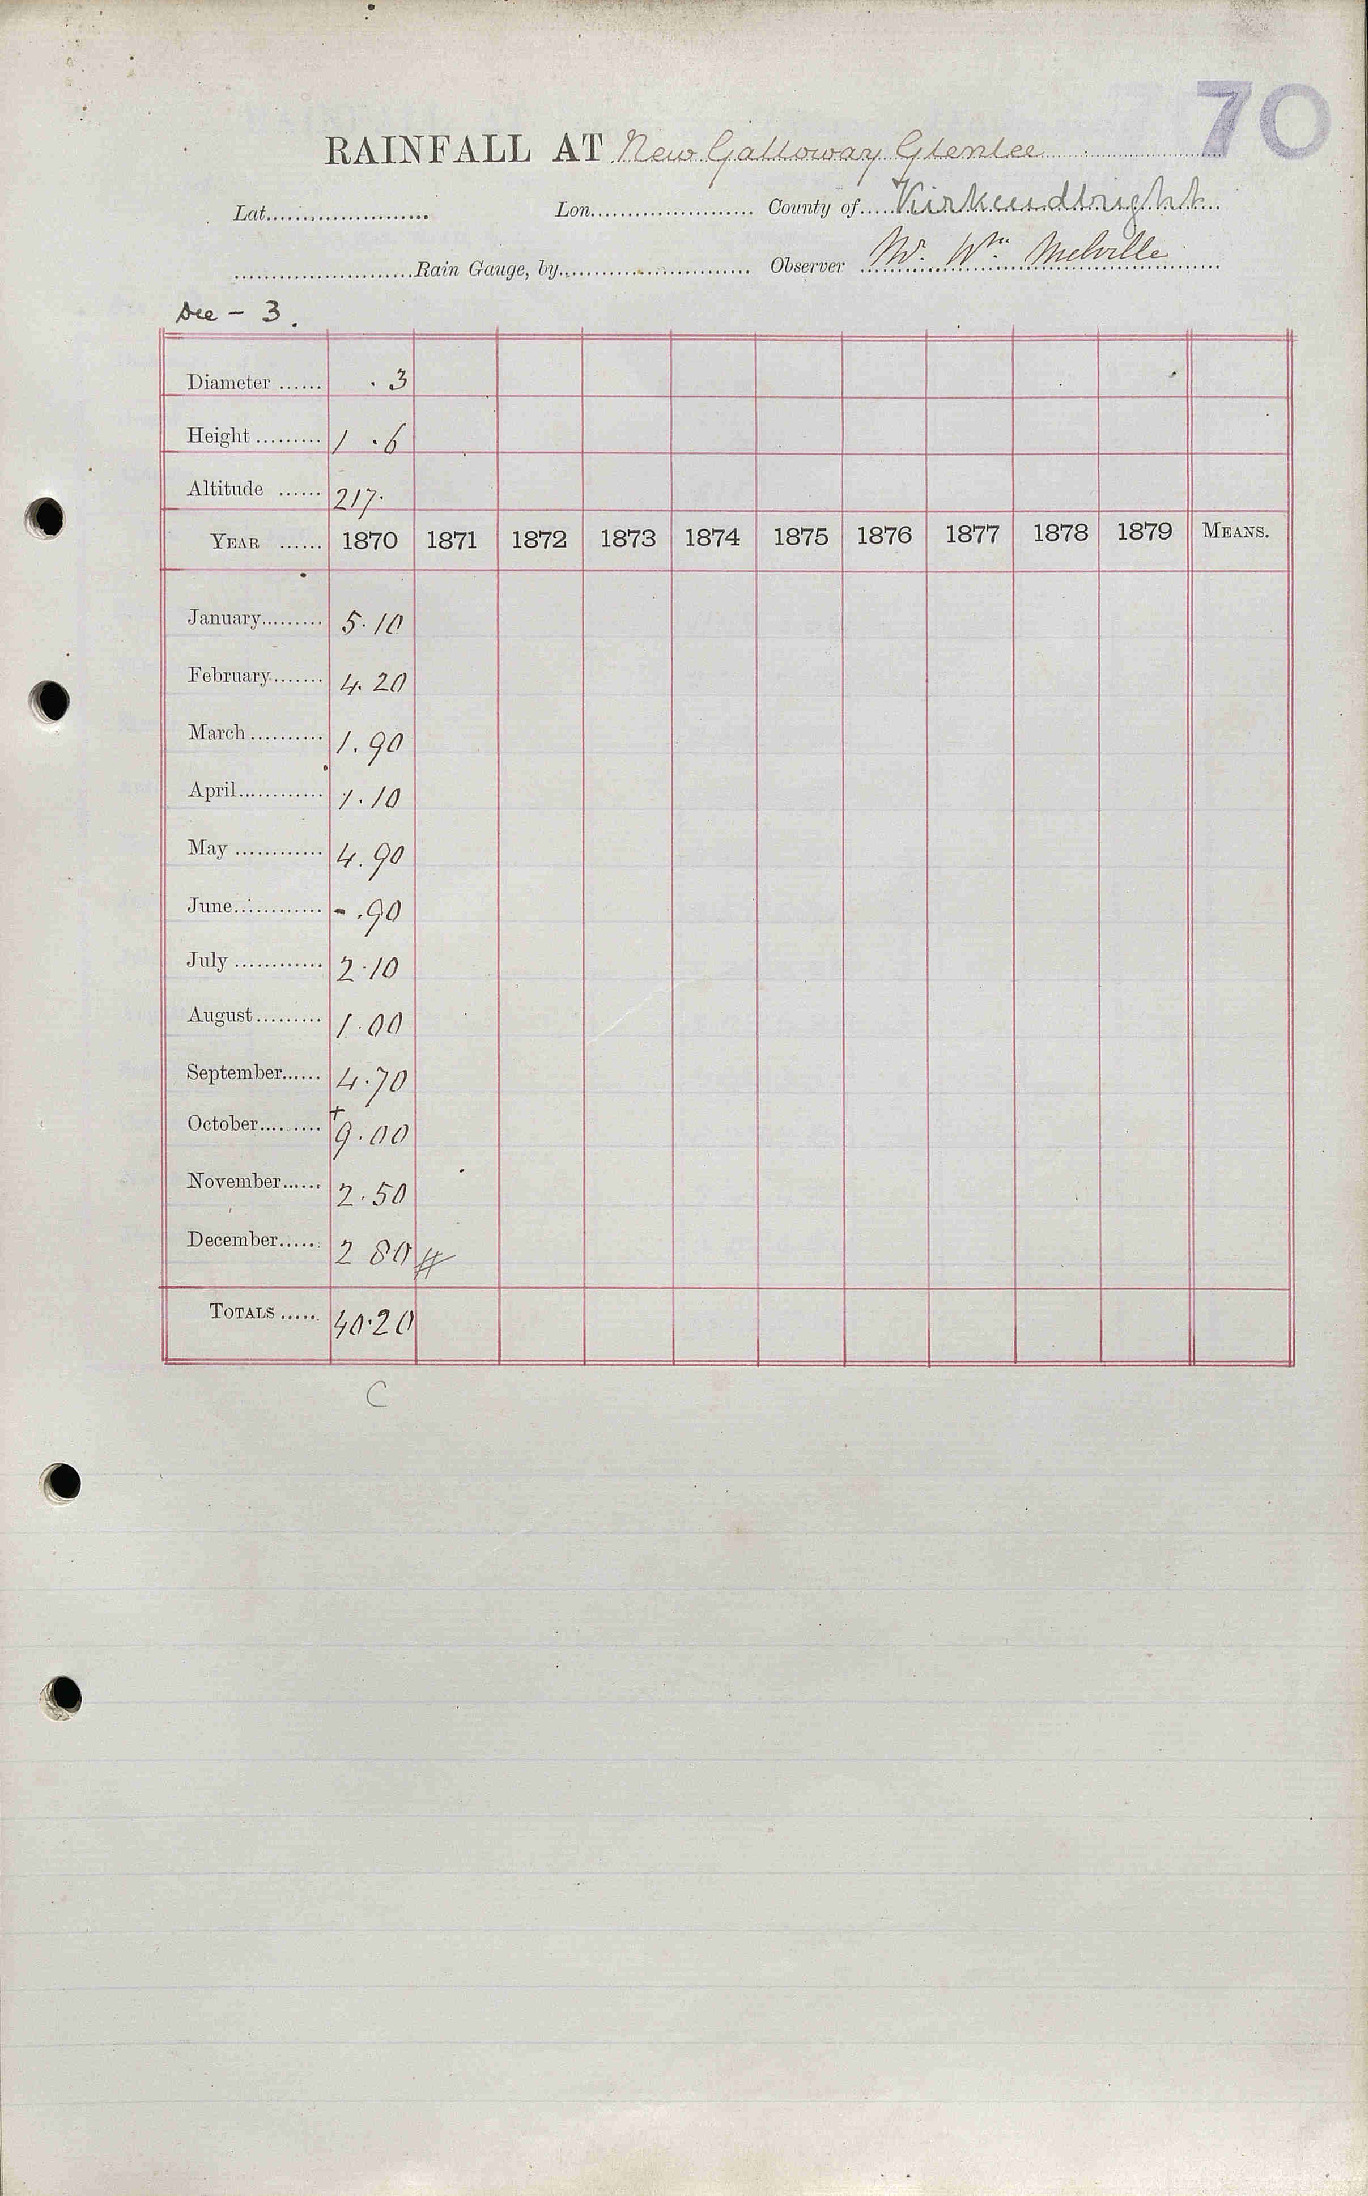 70
RAINFALL AT New Galloway Glenlee
Lat. Lon. County of Kirkcudbright
Rain Gauge, by Observer Mr. Wm. Melville
Dee - 3.
Diameter ...... .3
Height ......... 1 .6
Altitude ...... 217.
YEAR ...... 1870 1871 1872 1873 1874 1875 1876 1877 1878 1879 MEANS.
January......... 5.10
February........ 4.20
March .......... 1.90
April............ 1.10
May ............ 4.90
June............ - .90
July ............ 2.10
August......... 1.00
September...... 4.70
October......... +9.00
November...... 2.50
December...... 2 80 #
TOTALS ..... 40.20
C